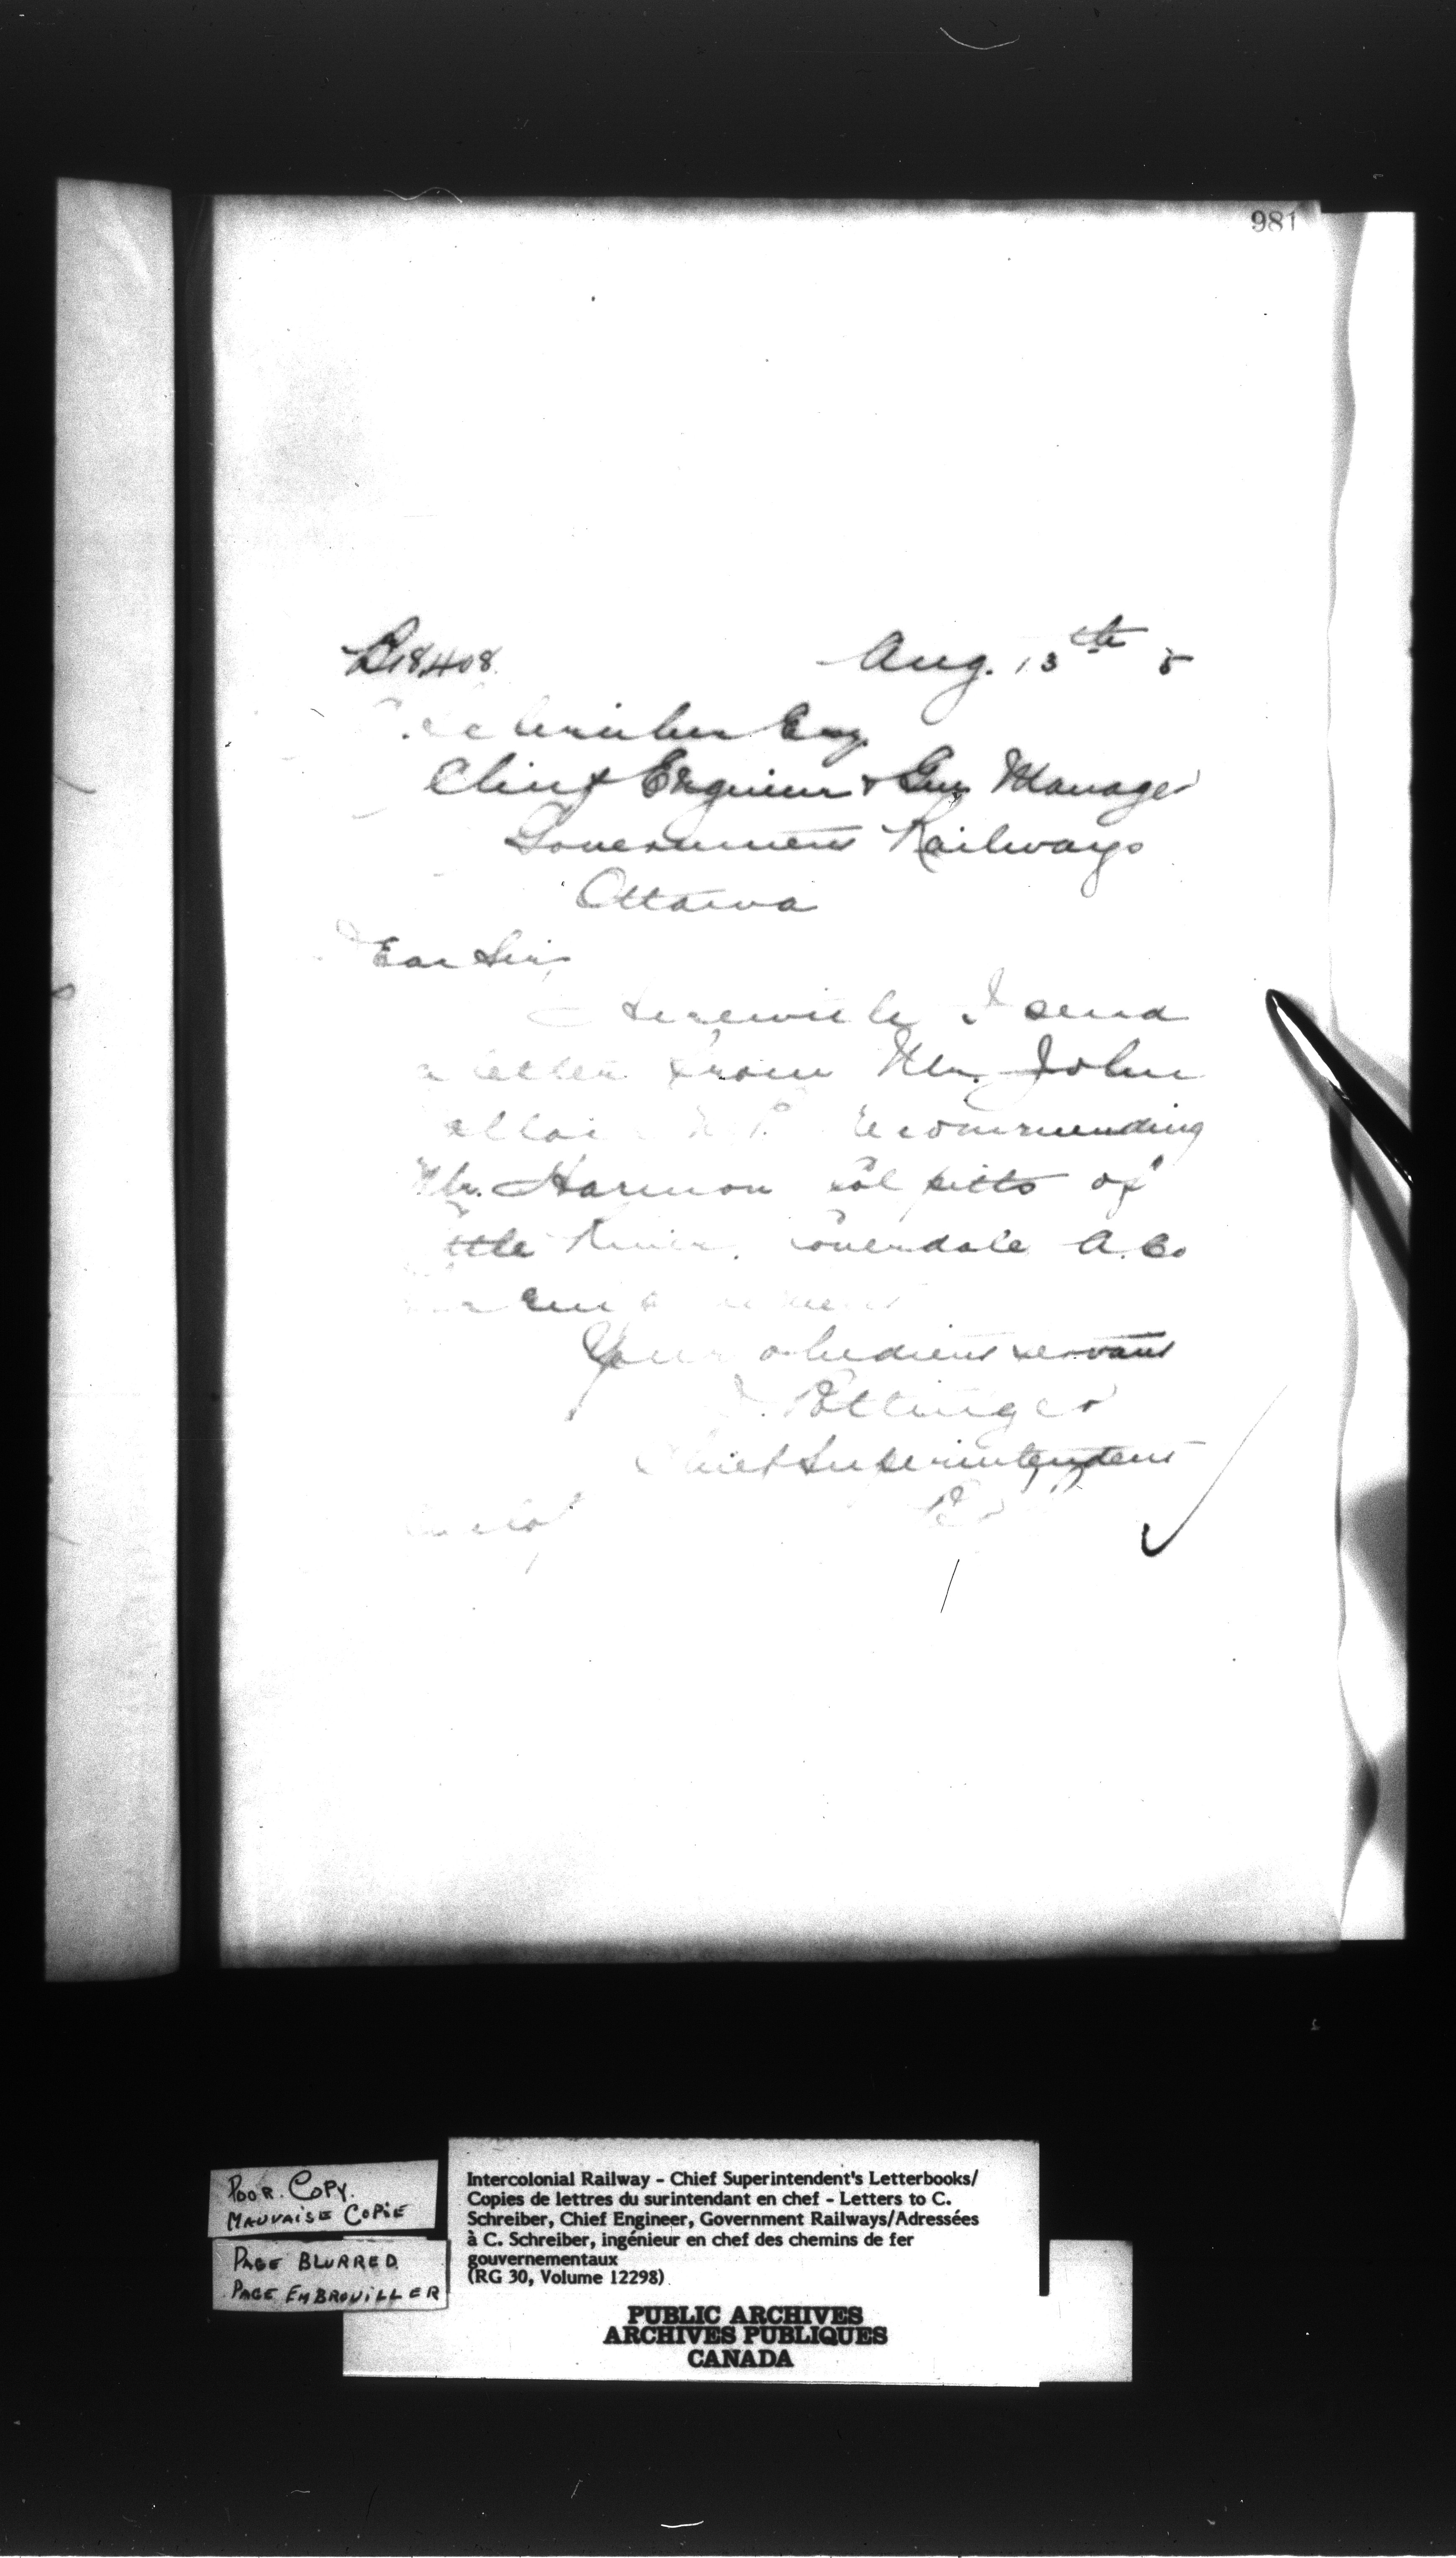 981
B18408. Aug. 13th 5
C. Schreiber Esq.
Chief Engineer & Gen Manager
Government Railways
Ottawa
Dear Sir
Herewith I send
a letter from Mr. John
M.P. recommending
Mr. Harmon Colpitts of
Little River, Coverdale A. Co
Your obedient servant
D. Pottinger
Chief Superintendent
POOR. COPY.
MAUVAISE COPIE
PAGE BLURRED
PAGE EMBROUILLER
Intercolonial Railway - Chief Superintendent's Letterbooks/
Copies de lettres du surintendant en chef - Letters to C.
Schreiber, Chief Engineer, Government Railways/Adressées
à C. Schreiber, ingénieur en chef des chemins de fer
gouvernementaux
(RG 30, Volume 12298)
PUBLIC ARCHIVES
ARCHIVES PUBLIQUES
CANADA